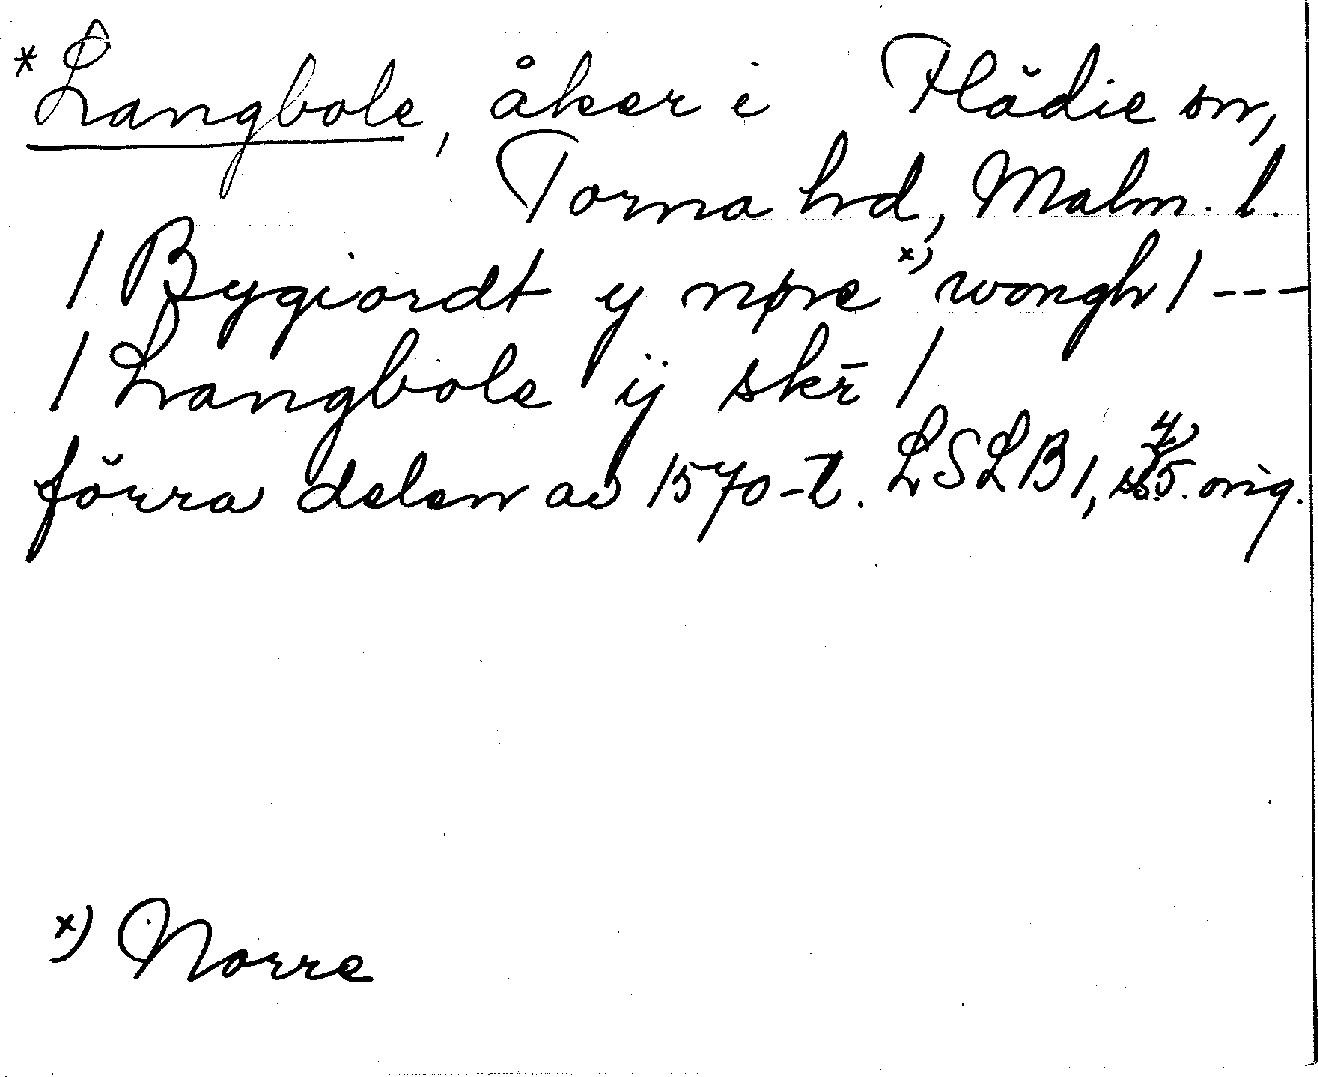 *Langbole, åker i Flädie sn,
Torna hd, Malm. l.
/ Bygiordt y nøre x) wongh / ---
/ Langbole ij skr̄ /
förra delen av 1570-t. LSLB 1, s. 5. orig.
x) Norre